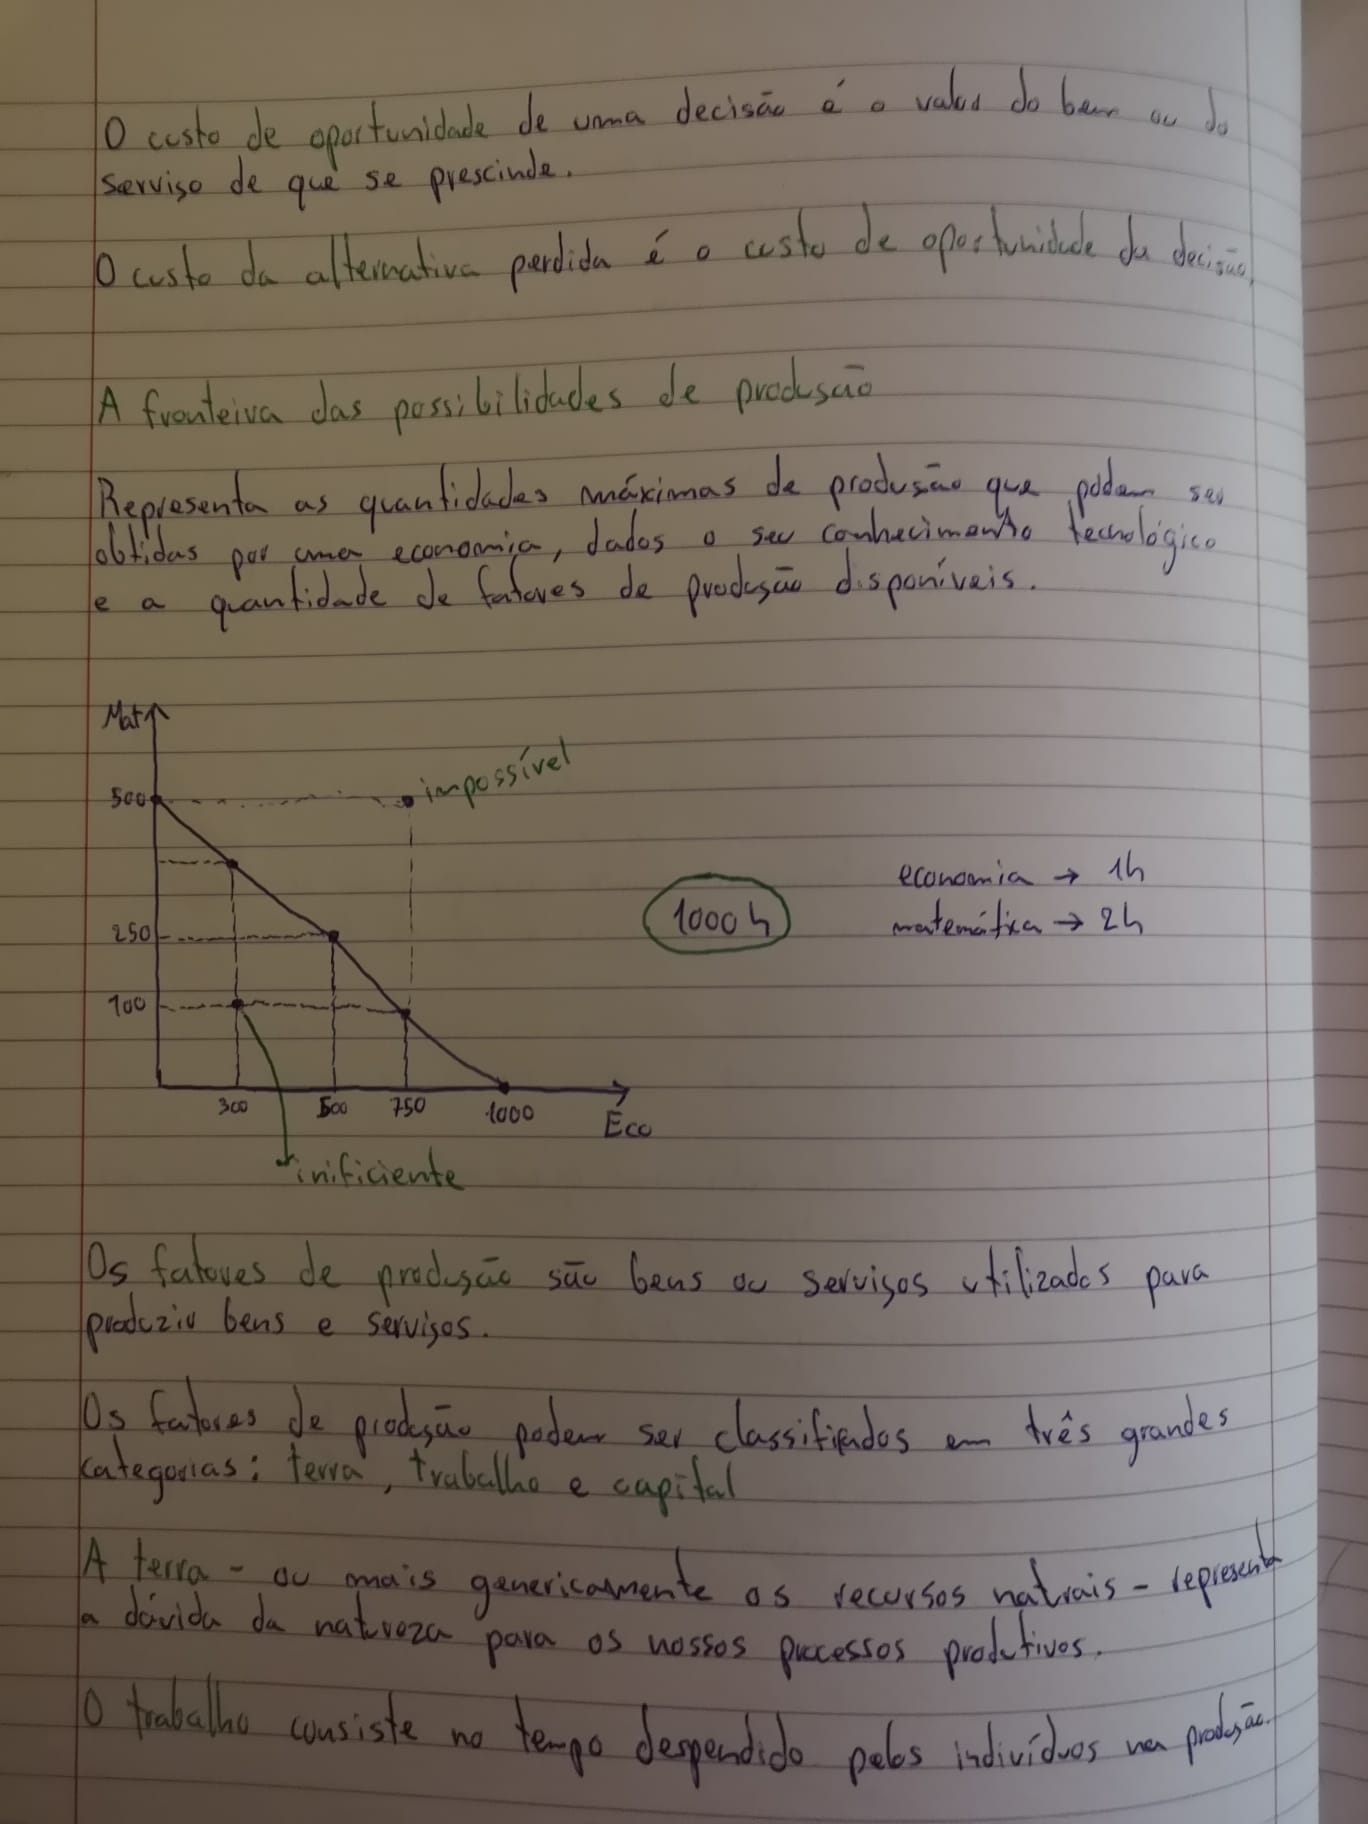 O custo de oportunidade de uma decisão é o valor do bem ou do
serviço de que se prescinde.
O custo da alternativa perdida é o custo de oportunidade da decisão.
A fronteira das possibilidades de produção
Representa as quantidades máximas de produção que podem ser
obtidas por uma economia, dados o seu conhecimento tecnológico
e a quantidade de fatores de produção disponíveis.
Mat
500
impossível
economia → 1h
1000 h
matemática → 2h
250
100
300 500 750 1000
Eco
inificiente
Os fatores de produção são bens ou serviços utilizados para
produzir bens e serviços.
Os fatores de produção podem ser classificados em três grandes
categorias: terra, trabalho e capital
A terra - ou mais genericamente os recursos naturais - representa
a dávida da natureza para os nossos processos produtivos.
O trabalho consiste no tempo despendido pelos indivíduos na produção.